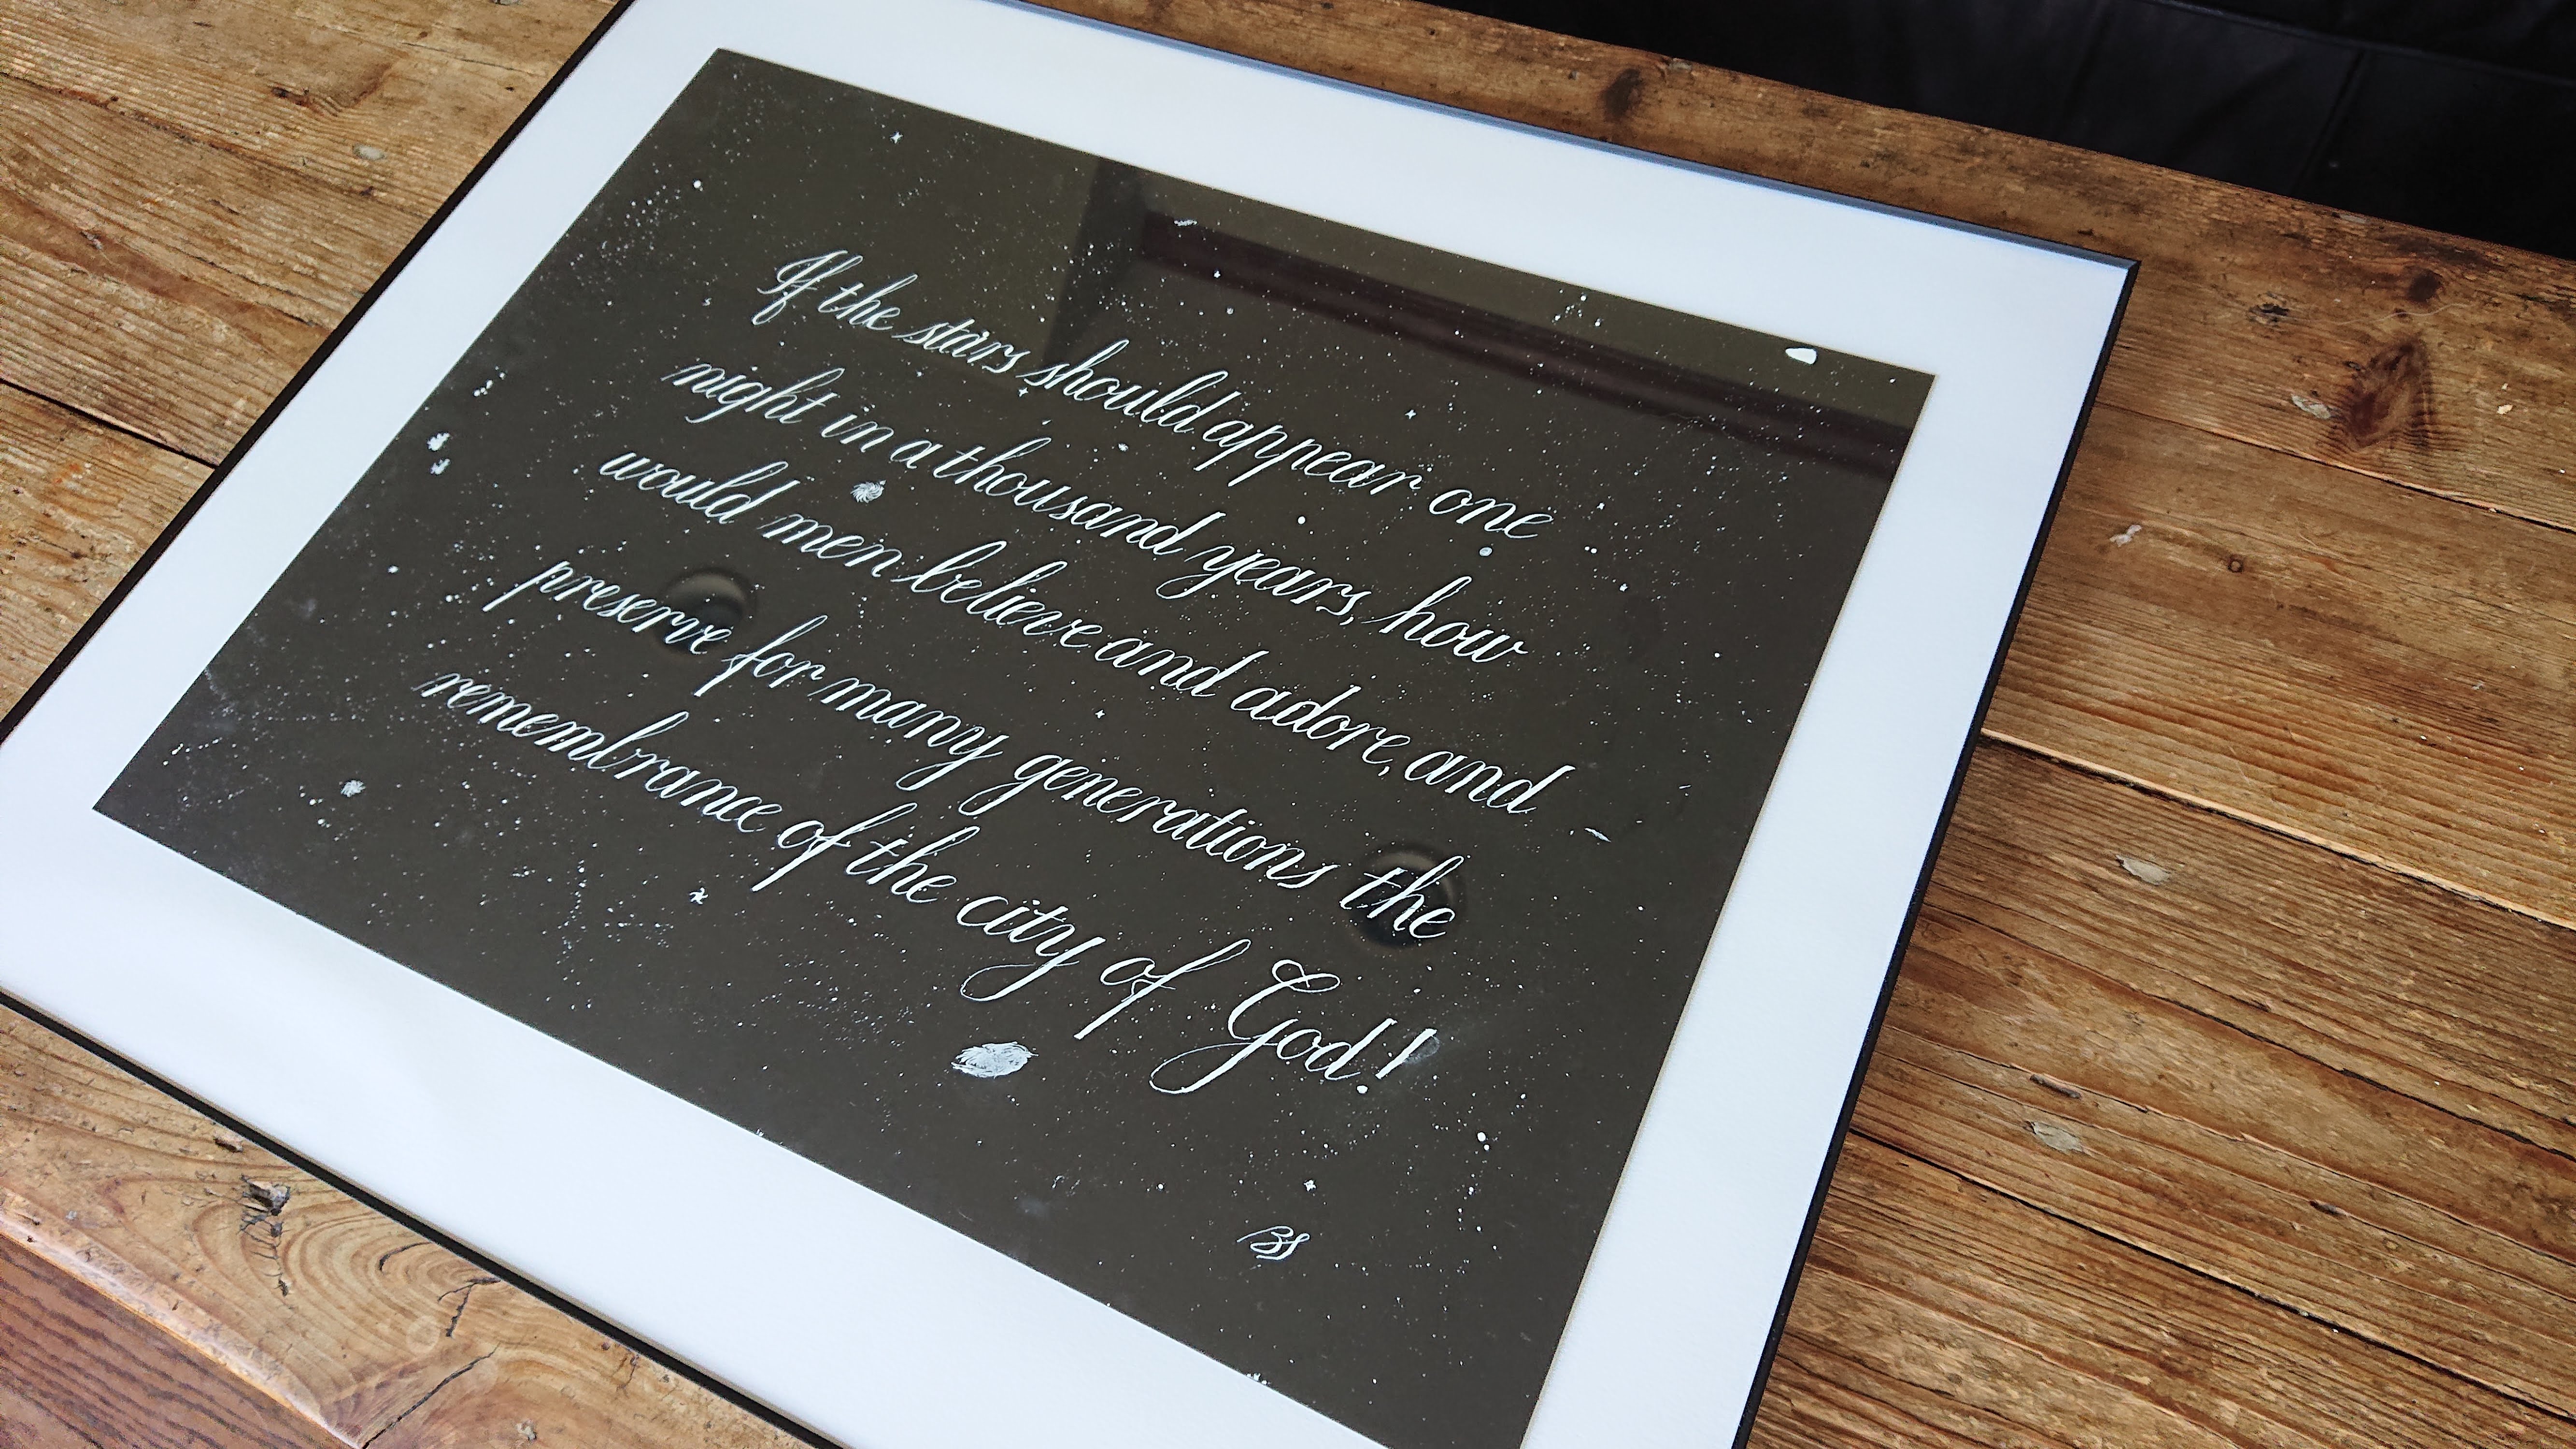 If the stars should appear one
night in a thousand years, how
would men believe and adore, and
preserve for many generations the
remembrance of the city of God!
BS